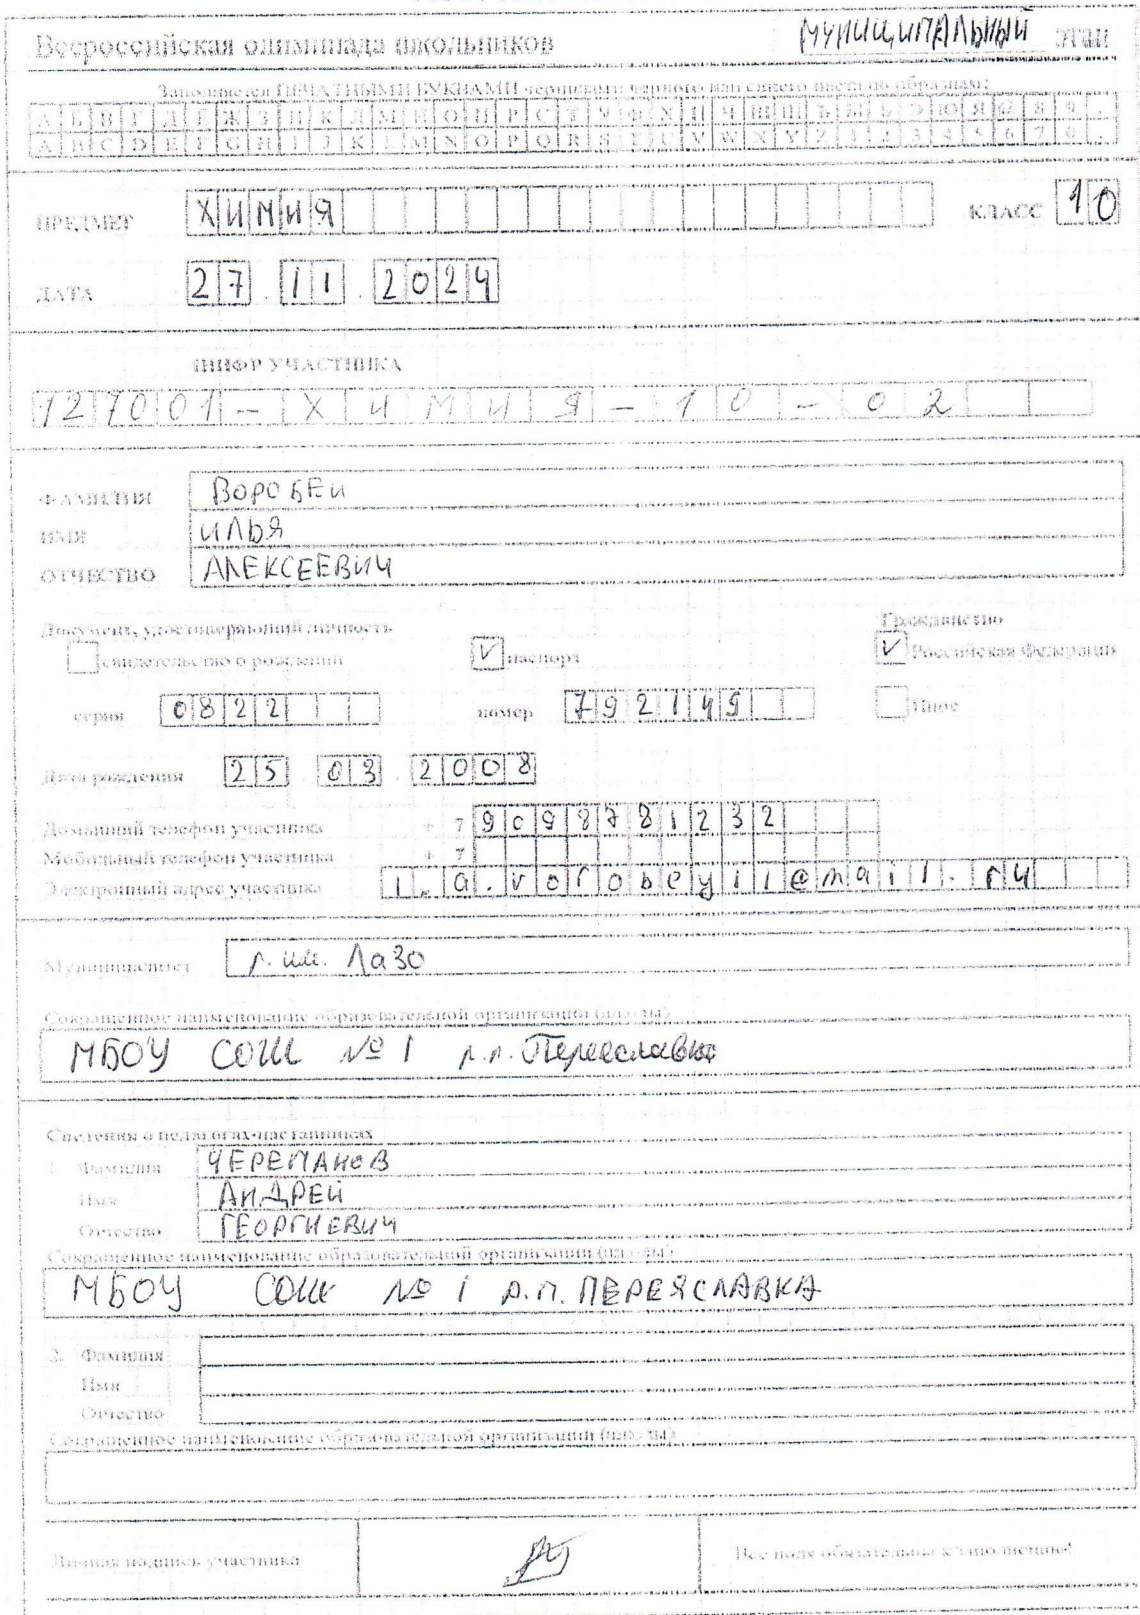 Всероссийская олимпиада школьников МУНИЦИПАЛЬНЫЙ этап
Заполняется ПЕЧАТНЫМИ БУКВАМИ чернилами черного или синего цвета по образцам:
ПРЕДМЕТ ХИМИЯ КЛАСС 10
ДАТА 27.11.2024
ШИФР УЧАСТНИКА
127001-ХИМИЯ-10-02
ФАМИЛИЯ ВОРОБЕЙ
ИМЯ ИЛЬЯ
ОТЧЕСТВО АЛЕКСЕЕВИЧ
Документ, удостоверяющий личность Гражданство
свидетельство о рождении V паспорт V Российская Федерация
серия 0822 номер 792149 Иное
Дата рождения 25.03.2008
Домашний телефон участника +7 9098781232
Мобильный телефон участника +7
Электронный адрес участника
Муниципалитет р. им. Лазо
Сокращенное наименование образовательной организации (школы)
МБОУ СОШ № 1 р.п. Переяславка
Сведения о педагогах-наставниках
1. Фамилия ЧЕРЕПАНОВ
Имя АНДРЕЙ
Отчество ГЕОРГИЕВИЧ
Сокращенное наименование образовательной организации (школы)
МБОУ СОШ № 1 р.п. ПЕРЕЯСЛАВКА
2. Фамилия
Имя
Отчество
Сокращенное наименование образовательной организации (школы)
Личная подпись участника Все поля обязательны к заполнению!